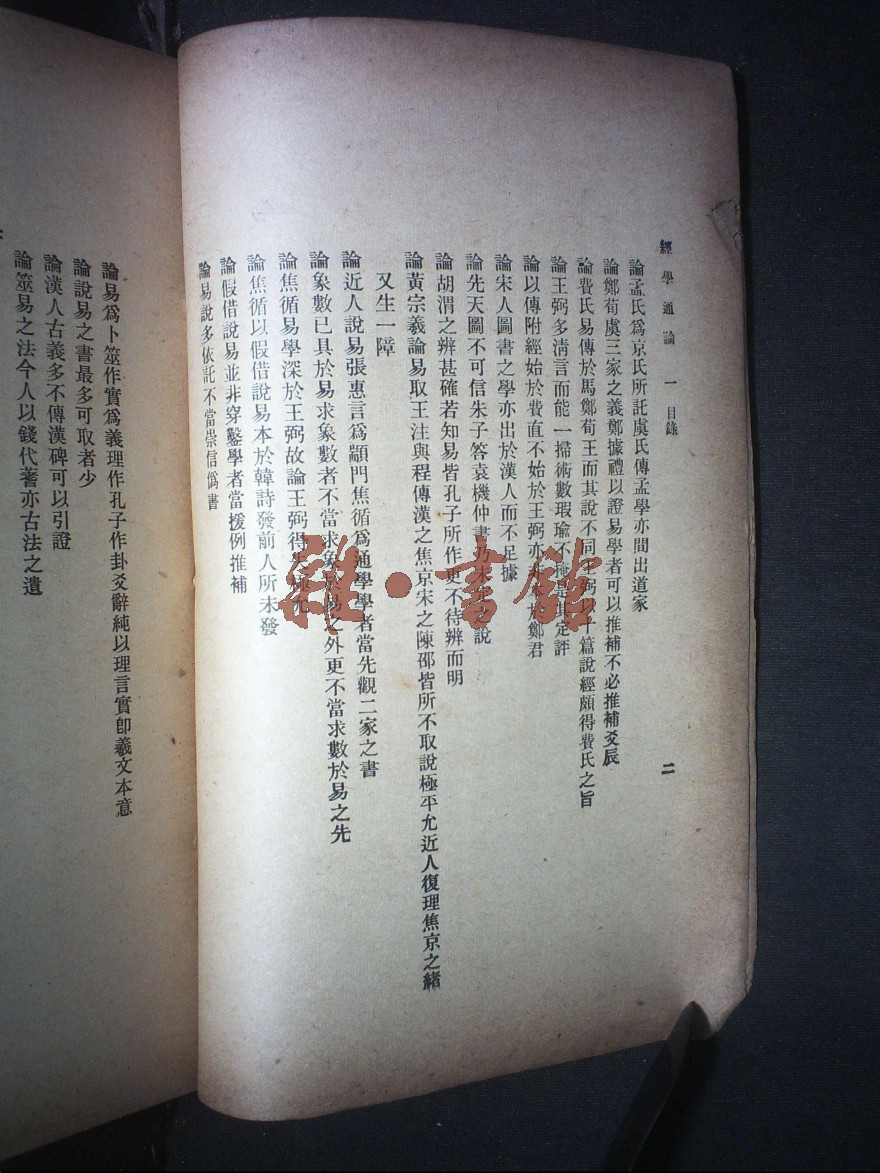 經學通論 一 目錄 二
論孟氏爲京氏所託虞氏傳孟學亦間出道家
論鄭荀虞三家之義鄭據禮以證易學者可以推補不必推補爻辰
論費氏易傳於馬鄭荀王而其說不同王弼以十篇說經頗得費氏之旨
論王弼多淸言而能一掃術數瑕瑜不掩是其定評
論以傳附經始於費直不始於王弼亦非本於鄭君
論宋人圖書之學亦出於漢人而不足據
論先天圖不可信朱子答袁機仲書乃未定之說
論胡渭之辨甚確若知易皆孔子所作更不待辨而明
論黃宗羲論易取王注與程傳漢之焦京宋之陳邵皆所不取說極平允近人復理焦京之緖
又生一障
論近人說易張惠言爲顓門焦循爲通學學者當先觀二家之書
論象數已具於易求象數者不當求象於易之外更不當求數於易之先
論焦循易學深於王弼故論王弼得失極允
論焦循以假借說易本於韓詩發前人所未發
論假借說易並非穿鑿學者當援例推補
論易說多依託不當崇信僞書
論易爲卜筮作實爲義理作孔子作卦爻辭純以理言實卽羲文本意
論說易之書最多可取者少
論漢人古義多不傳漢碑可以引證
論筮易之法今人以錢代蓍亦古法之遺
雜·書館